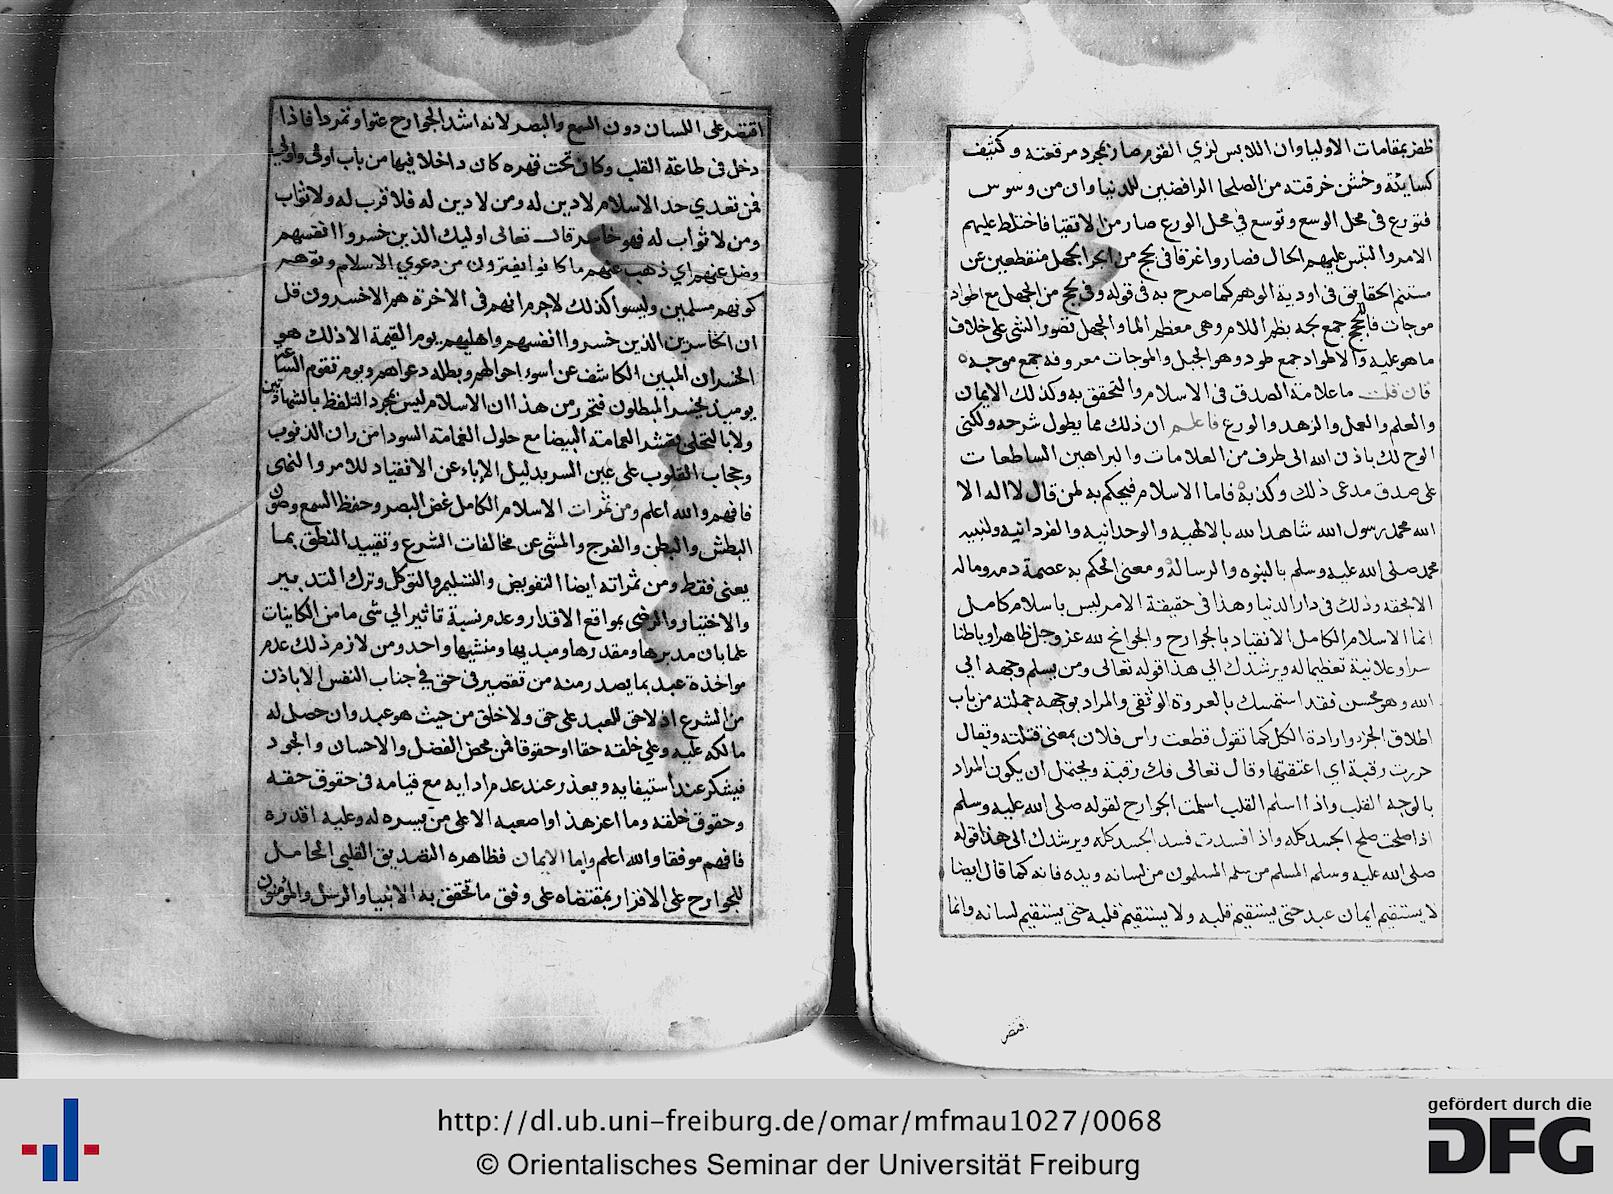 ظفر بمقامات الاوليا وان اللابس لزي القوم صار بمجرد مرقعته وكثيف
كسايته وخشن خرقته من الصلحا الرافضين للدنيا وان من وسوس
فتورع فى محل الوسع وتوسع في محل الورع صار من الاتقيا فاختلط عليهم
الامر والتبس عليهم الحال فصاروا غرقا فى لجج من ابحر الجهل منقطعين عن
الحقايق فى اودية الوهم كما صرح به فى قوله وفى لجج من الجهل مع اطواد
موجات فاللجج جمع لجه بظم اللام وهى معظم الما والجهل تصور الشى على خلاف
ما هو عليه والاطواد جمع طود وهو الجبل والموجات معروفه جمع موجه
فان قلت ما علامة الصدق فى الاسلام والتحقق به وكذلك الايمان
والعلم والعمل والزهد والورع فاعلم ان ذلك مما يطول شرحه ولكنى
الوح لك باذن الله الى طرف من العلامات والبراهين الساطعات
على صدق مدعى ذلك وكذبه فاما الاسلام فيحكم به لمن قال لا اله الا
الله محمد رسول الله شاهدا لله بالالهيه والوحدانيه والفردانيه ولنبيه
محمد صلى الله عليه وسلم بالنبوه والرساله ومعنى الحكم به عصمة دمه وماله
الا بحقه وذلك فى دار الدنيا وهذا فى حقيقة الامر ليس باسلام كامل
انما الاسلام الكامل الانقياد بالجوارح والجوانح لله عز وجل ظاهرا وباطنا
سرا وعلانية تعظيما له ويرشدك الى هذا قوله تعالى ومن يسلم وجهه الى
الله وهو محسن فقد استمسك بالعروة الوثقى والمراد بوجهه جملته من باب
اطلاق الجزء وارادة الكل كما تقول قطعت راس فلان بمعنى قتلته ويقال
حررت رقبة اي اعتقتها وقال تعالى فك رقبة ويحتمل ان يكون المراد
بالوجه القلب واذا اسلم القلب اسلمت الجوارح لقوله صلى الله عليه وسلم
اذا صلحت صلح الجسد كله واذا فسدت فسد الجسد كله ويرشدك الى هذا قوله
صلى الله عليه وسلم المسلم من سلم المسلمون من لسانه ويده فانه كما قال ايضا
لا يستقيم ايمان عبد حتى يستقيم قلبه ولا يستقيم قلبه حتى يستقيم لسانه وانما
اقتصر على اللسان دون السمع والبصر لانه اشد الجوارح عتوا وتمردا فاذا
دخل فى طاعة القلب وكان تحت قهره كان داخلا فيها من باب اولى واولى
فمن تعدي حد الاسلام لا دين له ومن لا دين له فلا قرب له ولا ثواب
ومن لا ثواب له فهو خاسر قال تعالى اوليك الذين خسروا انفسهم
وضل عنهم اي ذهب عنهم ما كانوا يفترون من دعوي الاسلام وتوهم
كونهم مسلمين وليسوا كذلك لاجرم انهم فى الاخرة هم الاخسرون قل
ان الخاسرين الذين خسروا انفسهم واهليهم يوم القيمة الا ذلك هو
الخسران المبين الكاشف عن اسوء احوالهم وبطله دعواهم ويوم تقوم الساعة
يوميذ يخسر المبطلون فتحرر من هذا ان الاسلام ليس بمجرد التلفظ بالشهادتين
ولا بالتحلى بقشد العمامة البيضا مع حلول الغمامة السودا من ران الذنوب
وحجاب القلوب على عين السر بدليل الإباء عن الانقياد للامر والنهى
فافهم والله اعلم ومن ثمرات الاسلام الكامل غض البصر وحفظ السمع وصون
البطش والبطن والفرج والمشى عن مخالفات الشرع وتقييد النطق بما
يعنى فقط ومن ثمراته ايضا التفويض والتسليم والتوكل وترك التدبير
والاختيار والرضى بمواقع الاقدار وعدم نسبة تاثير الي شى ما من الكاينات
علما بان مدبرها ومقدرها ومبديها ومنشيها واحد ومن لازم ذلك عدم
مواخذة عبد بما يصدر منه من تقصير فى حق في جناب النفس الا باذن
من الشرع اذ لا حق للعبد على حق ولا خلق من حيث هو عبد وان حصل له
مالكه عليه وعلي خلقه حقا او حقوقا فمن محض الفضل والاحسان والجود
فيشكر عند استيفايه ويعذر عند عدم ادايه مع قيامه فى حقوق حقه
وحقوق خلقه وما اعز هذا واصعبه الا على من يسره له وعليه اقدره
فافهم موفقا والله اعلم واما الايمان فظاهره التصديق القلبى الحامل
للجوارح على الاقرار بمقتضاه على وفق ما تحقق به الانبيا والرسل والمؤمنون
http://dl.ub.uni-freiburg.de/omar/mfmau1027/0068
© Orientalisches Seminar der Universität Freiburg
gefördert durch die
DFG